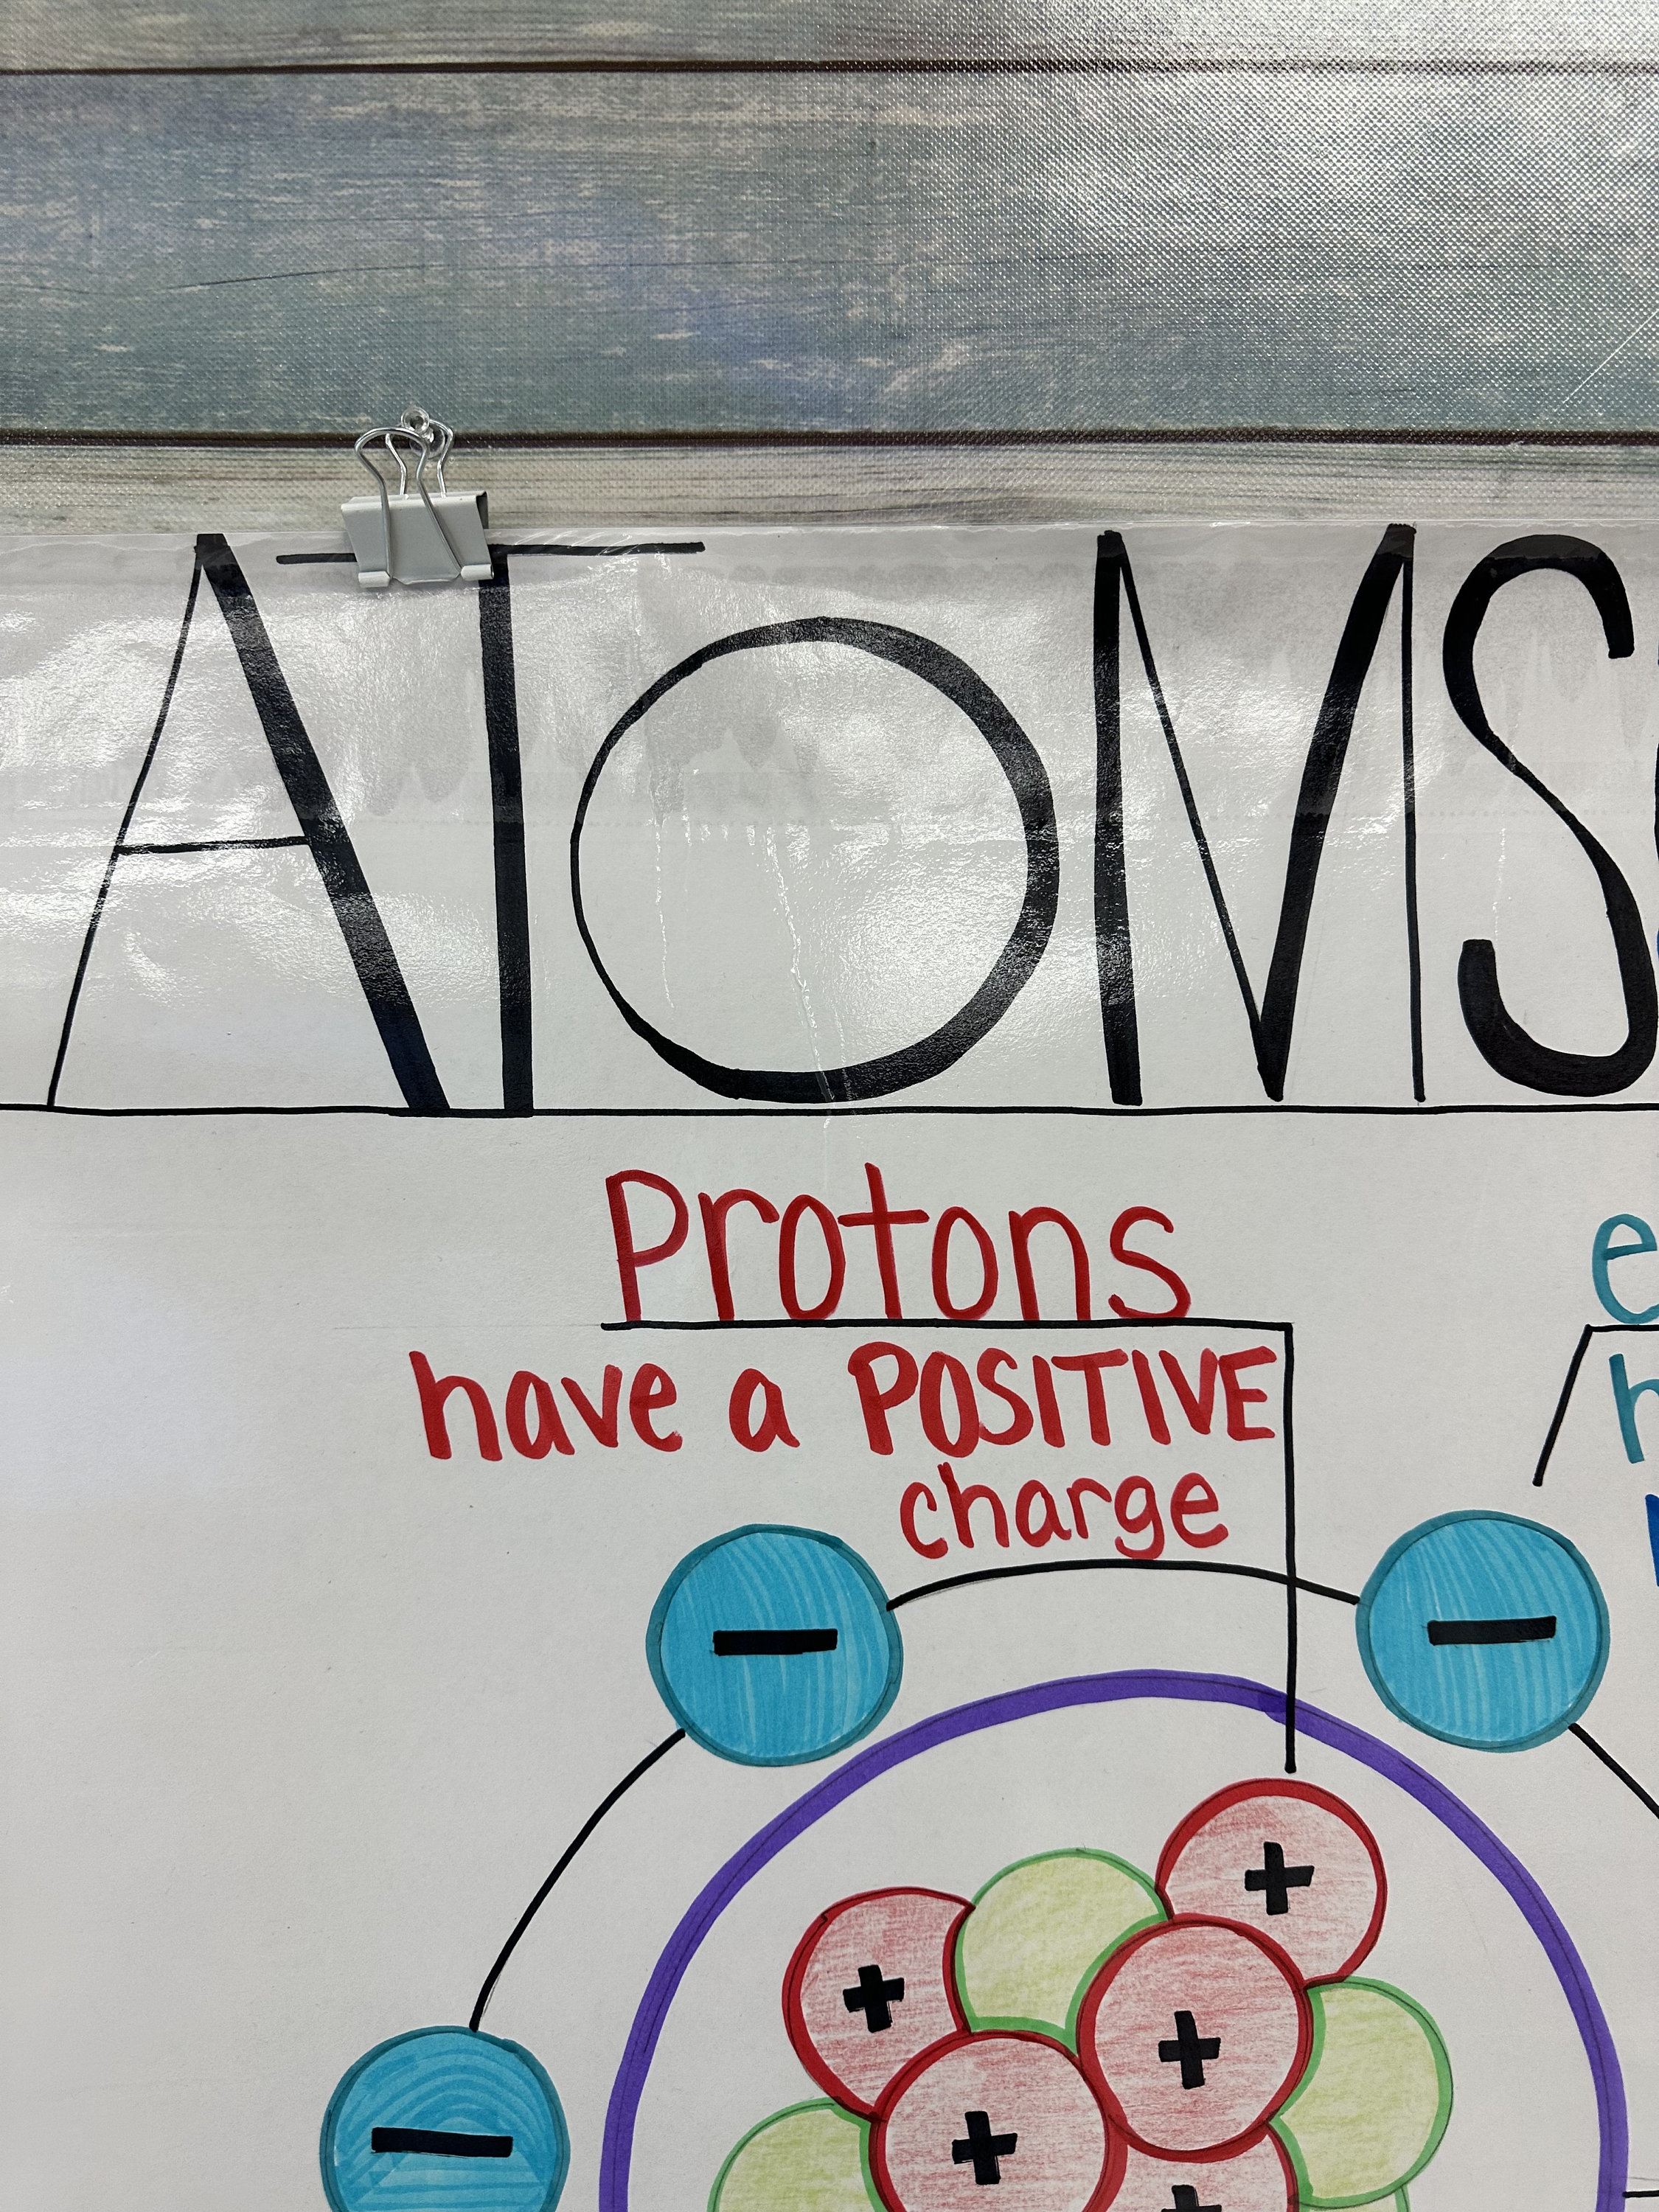 ATOMS
Protons
have a POSITIVE
charge
e
h
−
−
+
+
+
−
+
+